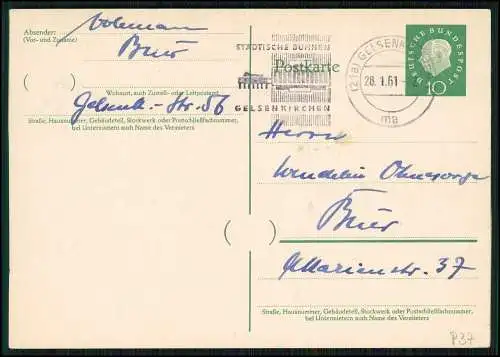 Absender:
(Vor- und Zuname)
Buer
Wohnort, auch Zustell- oder Leitpostamt
Gelsenk.-Str. 56
Straße, Hausnummer, Gebäudeteil, Stockwerk oder Postschließfachnummer,
bei Untermietern auch Name des Vermieters
STÄDTISCHE BÜHNEN
GELSENKIRCHEN
Postkarte
(21B) GELSENK
28.1.61
ma
DEUTSCHE BUNDESPOST
10
Herrn
Wendelin Ohnesorge
Buer
Marienstr. 37
Straße, Hausnummer, Gebäudeteil, Stockwerk oder Postschließfachnummer;
bei Untermietern auch Name des Vermieters
P37